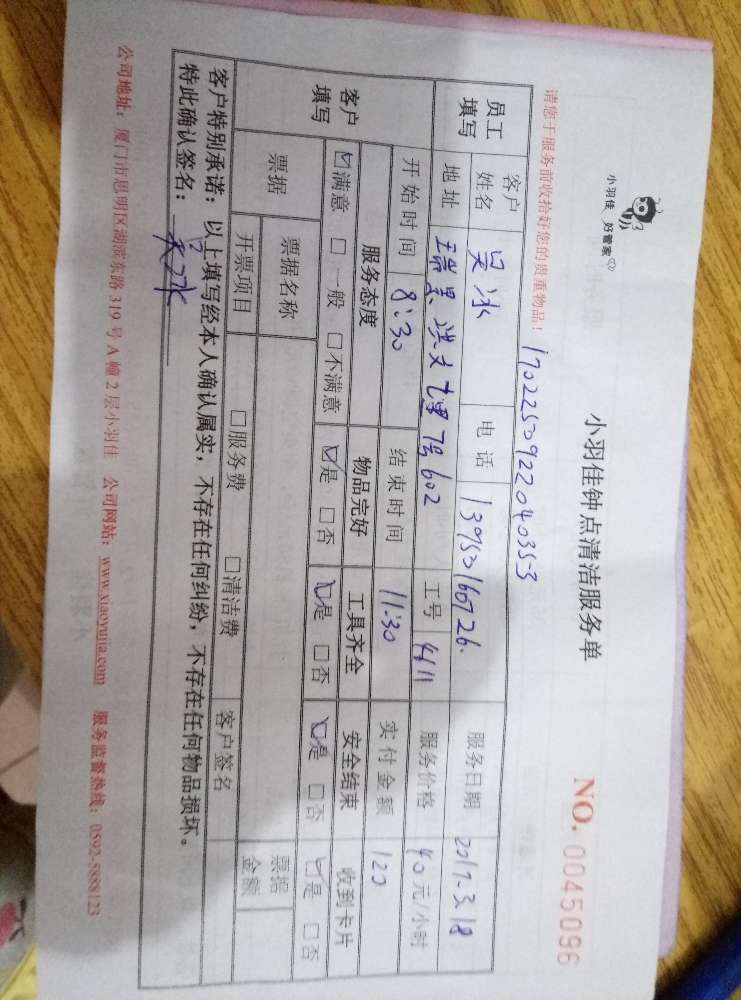 小羽佳 好管家
小羽佳钟点清洁服务单
NO. 0045096
请您于服务前收拾好您的贵重物品！
1702250922040353
员工填写 客户姓名 吴冰 电话 服务日期 2017.3.18
地址 瑞景 号602 工号 4611 服务价格 40元/小时
客户填写 开始时间 8:30 结束时间 11:30 实付金额 120
服务态度 物品完好 工具齐全 安全结束 收到卡片
☑满意 □一般 □不满意 ☑是 □否 ☑是 □否 ☑是 □否 ☑是 □否
票据 票据名称 票据金额
开票项目 □服务费 □清洁费 客户签名
客户特别承诺：以上填写经本人确认属实，不存在任何纠纷，不存在任何物品损坏。
特此确认签名：
公司地址：厦门市思明区湖滨东路319号A幢2层小羽佳 公司网站：www.xiaoyujia.com 服务监督热线：0592-5888123